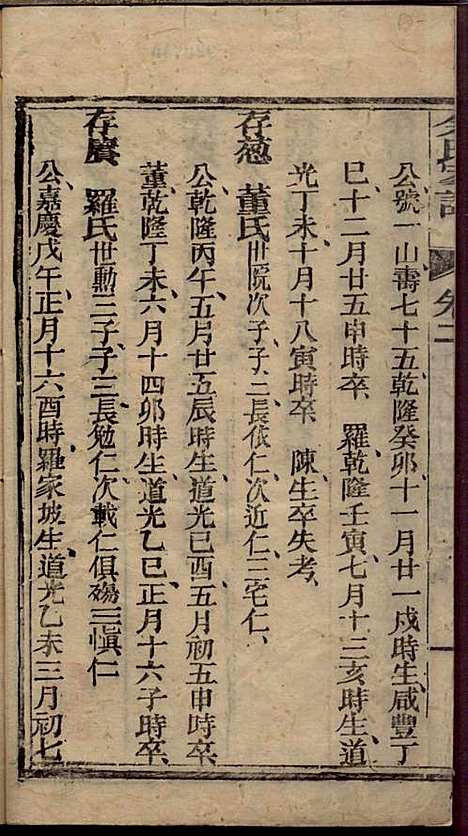 氏家譜
卷二
公號一山壽七十五乾隆癸卯十一月廿一戌時生咸豐丁
巳十二月廿五申時卒 羅乾隆壬寅七月十三亥時生道
光丁未十月十八寅時卒 陳生卒失考
存葱 董氏世院次子子三長依仁次近仁三宅仁
公乾隆丙午五月廿五辰時生道光己酉五月初五申時卒
董乾隆丁未六月十四卯時生道光乙巳正月十六子時卒
存賡 羅氏世勲三子子三長勉仁次載仁俱殤三慎仁
公嘉慶戊午正月十六酉時羅家坡生道光乙未三月初七